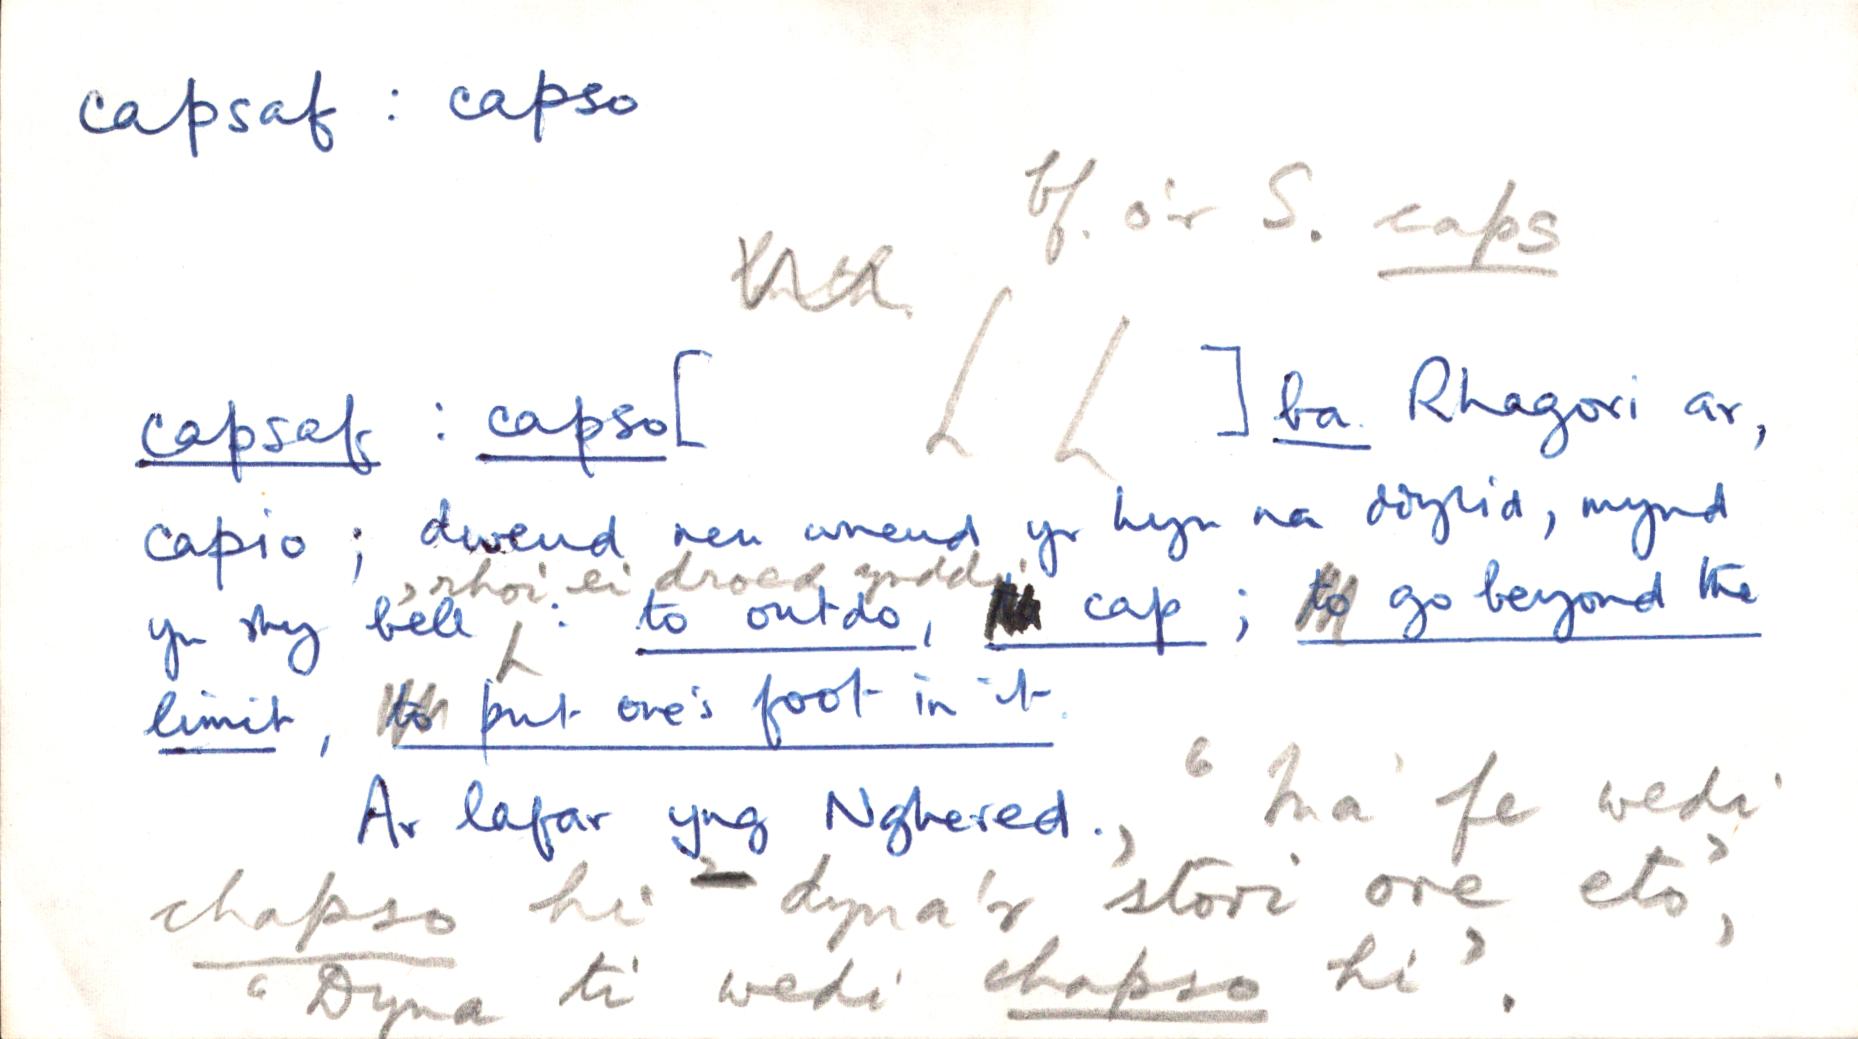 capsaf : capso
bf. o'r S. caps
capsaf : capso [ ] ba. Rhagori ar,
capio ; dweud neu wneud yr hyn na ddylid, mynd
, rhoi ei droed ynddi
yn rhy bell : to outdo, cap ; to go beyond the
limit, to put one's foot in it.
Ar lafar yng Nghered., ‘Ma' fe wedi
chapso hi’ – dyna'r stori ore eto’,
‘Dyna ti wedi chapso hi’.